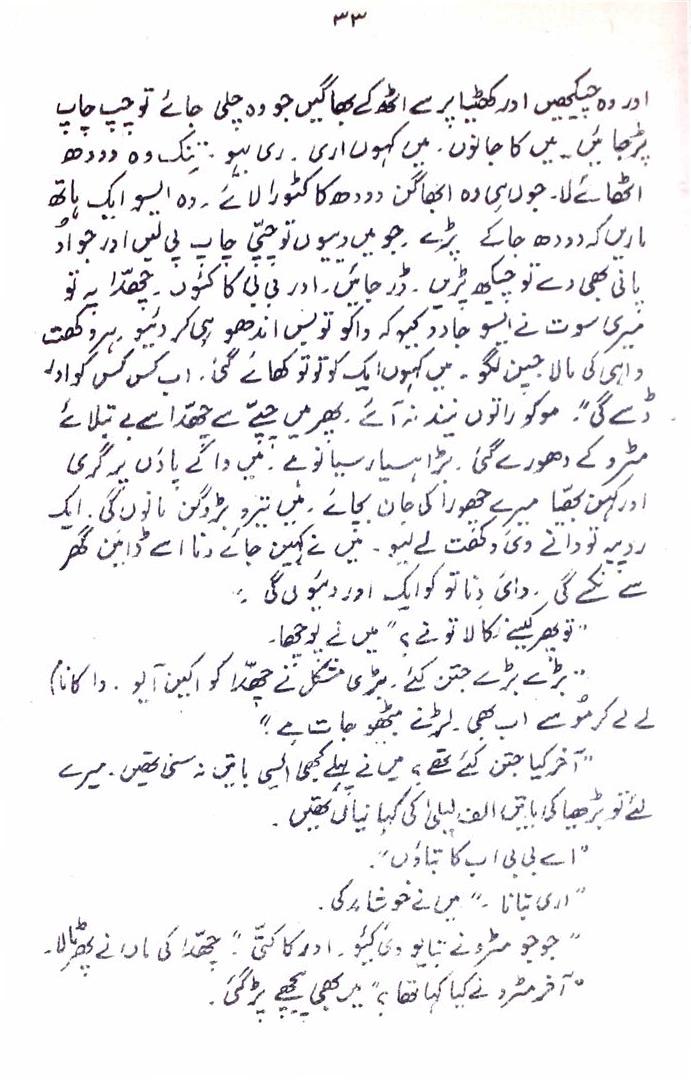 ۳۳
اور وہ چیکھیں اور کھٹیا پر سے اٹھ کے بھاگیں جو وہ چلی جائے تو چپ چاپ
پڑجائیں۔ میں کا جانوں۔ میں کہوں اری۔ ری بہو۔ تنک وہ دودھ
اٹھائے لا۔ جوں ہی وہ ابھاگن دودھ کا کٹورا لائے۔ وہ ایسو ایک ہاتھ
ماریں کہ دودھ جا کے پڑے۔ جو میں دیوں تو چپّی چاپ پی لیں اور جو او
پانی بھی دے تو چیکھ پڑیں۔ ڈر جائیں۔ اور بی بی کا کہوں۔ چھدّا پہ تو
میری سوت نے ایسو جادو کیو کہ واکو توبس اندھو ہی کر دیو۔ ہر وکھت
واہی کی مالا جپن لگو۔ میں کہوں ایک کو تو تو کھائے گئی۔ اب کس کس کو اور
ڈسے گی"۔ موکو راتوں نیند نہ آئے۔ پھر میں چپے سے چھدّا سے بے بتلائے
مٹرو کے دھورے گئی۔ بڑا ہسیار سیانو ہے۔ میں واگے پاؤں پر گری
اور کہن بھیّا میرے چھورا کی جان بچائے۔ میں تیرو بڑو گن مانوں گی۔ ایک
روپیہ تو وانے وئی وکھت لے لیو۔ میں نے کہین جائے دنا اسے ڈائین گھر
سے نکے گی۔ وائی دنا تو کو ایک اور دیوں گی۔"
"تو پھر کیسے نکالا تو نے؟" میں نے پوچھا۔
"بڑے بڑے جتن کئے۔ بڑی مشکل نے چھدّا کو اکین آیو۔ وا کا نا)
لے لے کر مو سے اب بھی لڑنے بیٹھو جات ہے۔"
"آخر کیا جتن کئے تھے؟ میں نے پہلے کبھی ایسی باتیں نہ سنی تھیں۔ میرے
لئے تو بڑھیا کی باتیں الف لیلیٰ کی کہانیاں تھیں۔
"اے بی بی اب کا بتاؤں"۔
"اری بتانا۔" میں نے خوشامد کی۔
"جو جو مٹرو نے بتایو وئی کیو۔ اور کا کتّی"۔ چھدّا کی ماں نے پھر ٹالا۔
"آخر مٹرو نے کیا کہا تھا؟" میں بھی پیچھے پڑ گئی۔